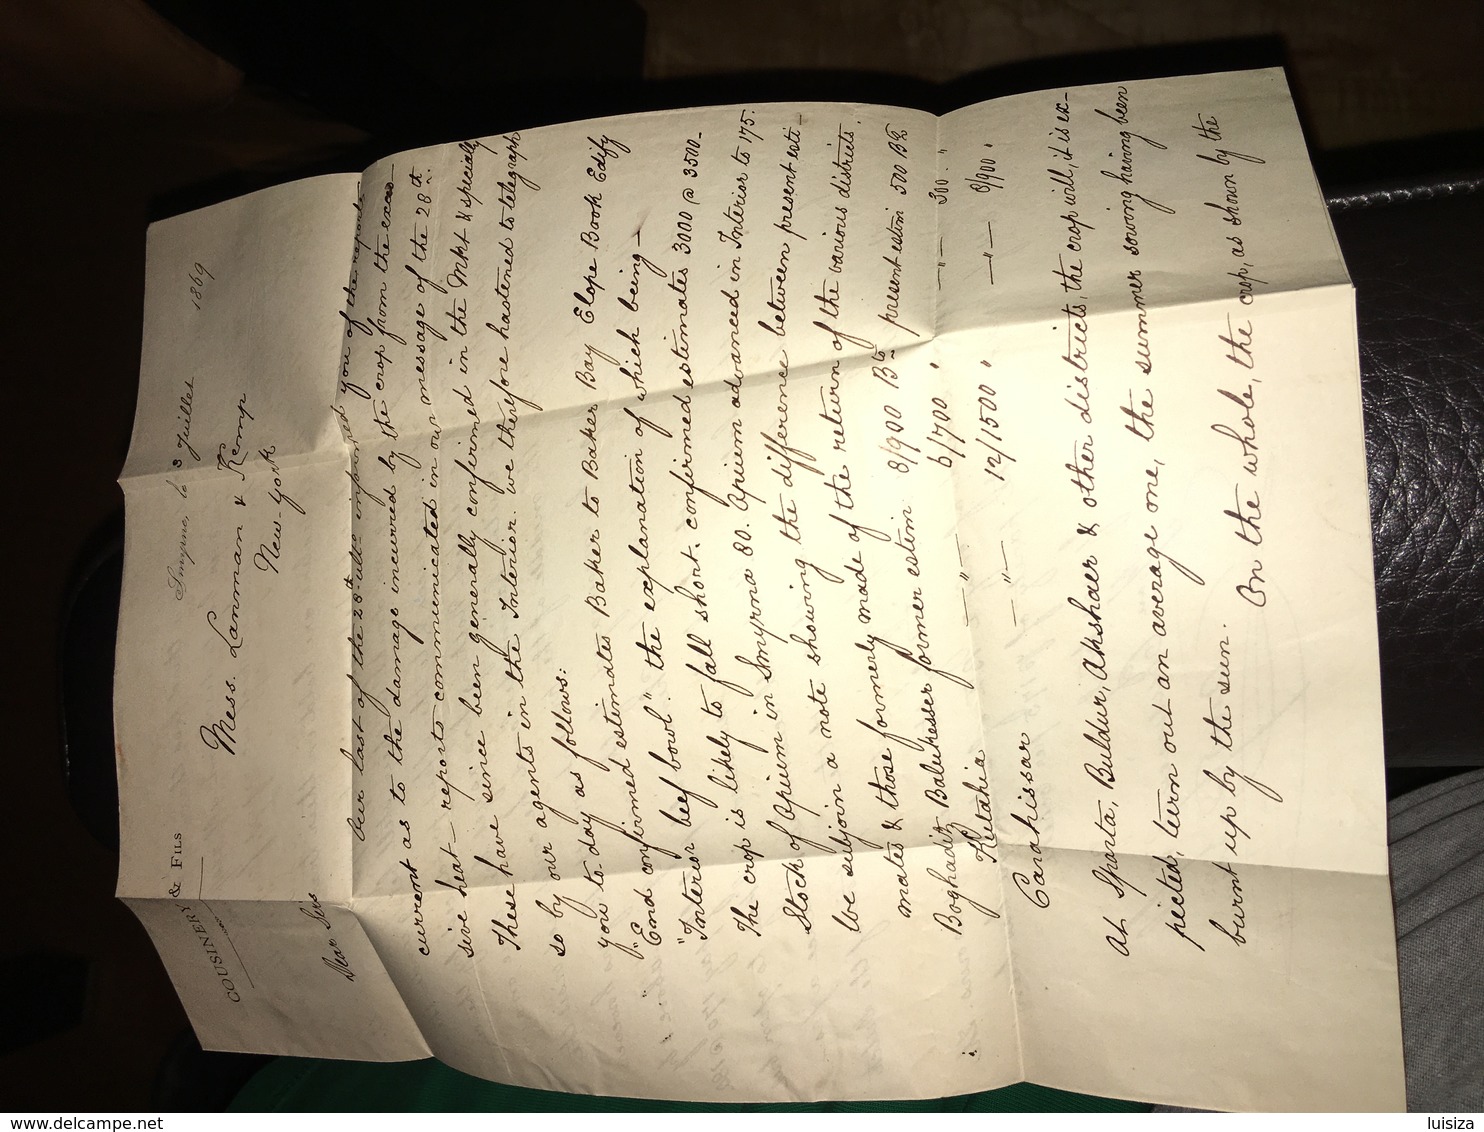 COUSINERY & FILS
Smyrne, le 3 Juillet 1869
Mess. Lanman & Kemp
New York
Dear Sirs
Our last of the 28th ulto informed you of the reports
current as to the damage incured by the crop from the exces
sive heat — reports communicated in our message of the 28th
These have since been generally confirmed in the Mkt & specially
so by our agents in the Interior. We therefore hastened to telegraph
you to day as follows:
"End confirmed estimates Baker to Baker Bay Elope Book Edify
"Interior beef bowl." the explanation of which being —
The crop is likely to fall short. confirmed estimates 3000 @ 3500.
Stock of Opium in Smyrna 80. Opium advanced in Interior to 175.
We subjoin a note showing the difference between present esti-
mates & those formerly made of the return of the various districts.
Boghaditz Balukesser former estim 8/900 Bts present estim 500 Bts
Kutahia —"— 6/700 " —"— 300 "
Carahissar —"— 12/1500 " —"— 8/900 "
At Sparta, Buldur, Akshaer & other districts, the crop will, it is ex-
pected, turn out an average one, the summer sowing having been
burnt up by the sun. On the whole, the crop, as shown by the
www.delcampe.net
luisiza